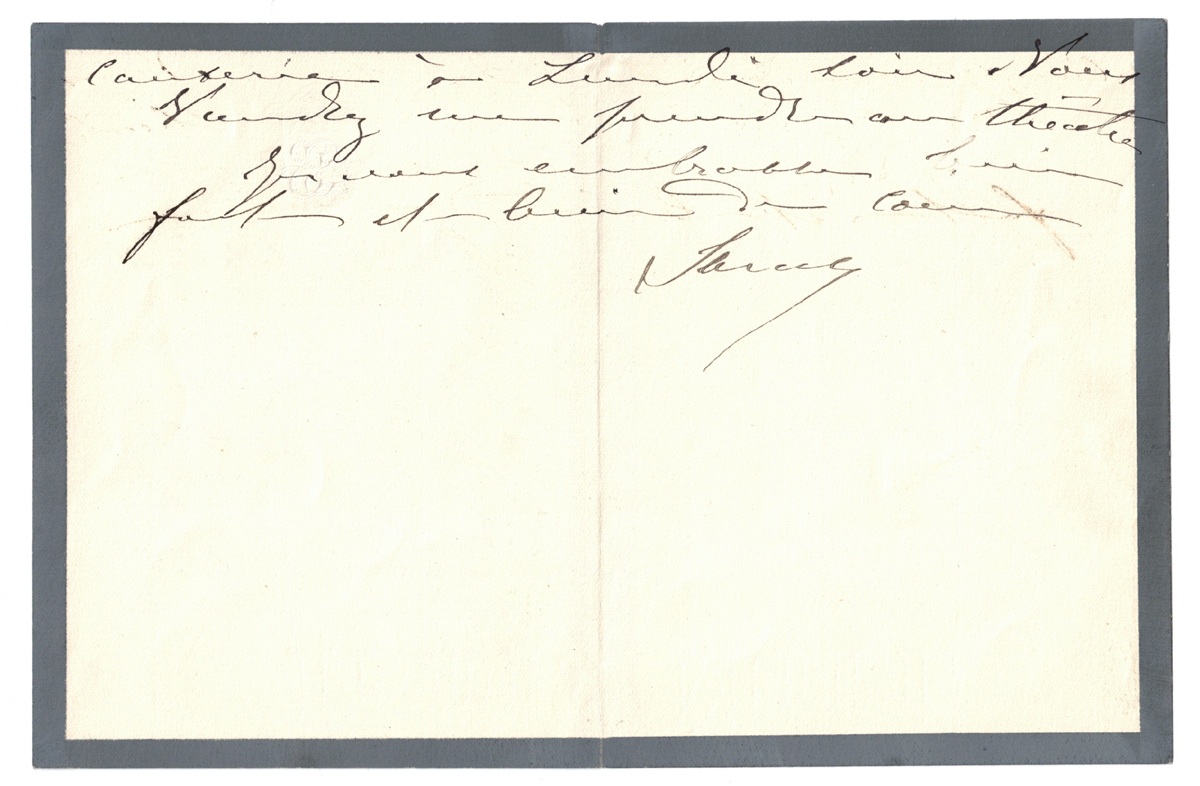 causerie à Lundi soir Vous
Viendrez me prendre au théâtre
Je vous embrasse bien
fort et bien de cœur
Sarah